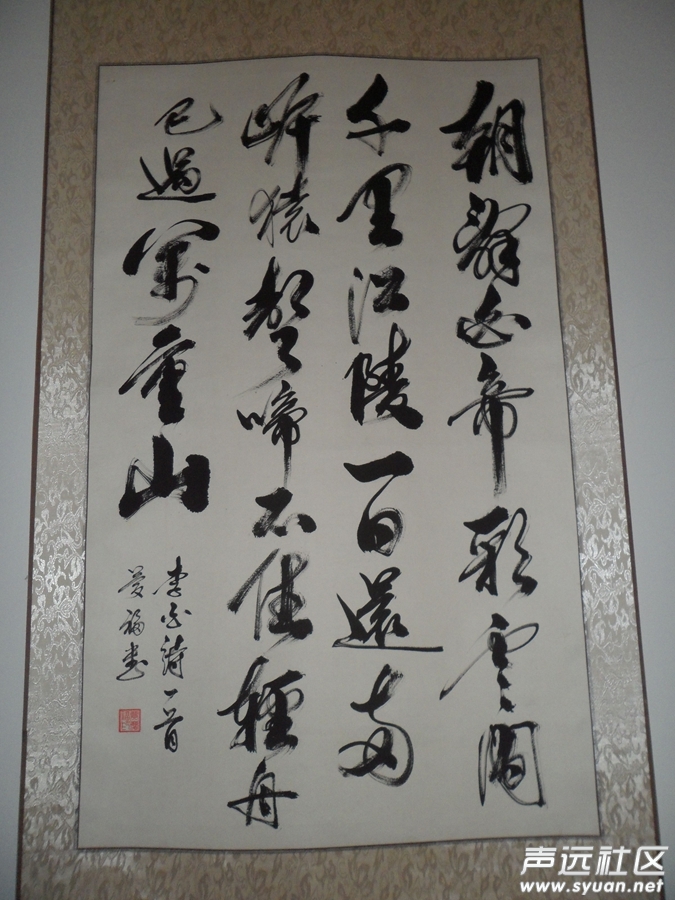 朝辭白帝彩雲間
千里江陵一日還両
岸猿聲啼不住輕舟
已過萬重山
李白詩一首
爱福书
声远社区
www.syuan.net